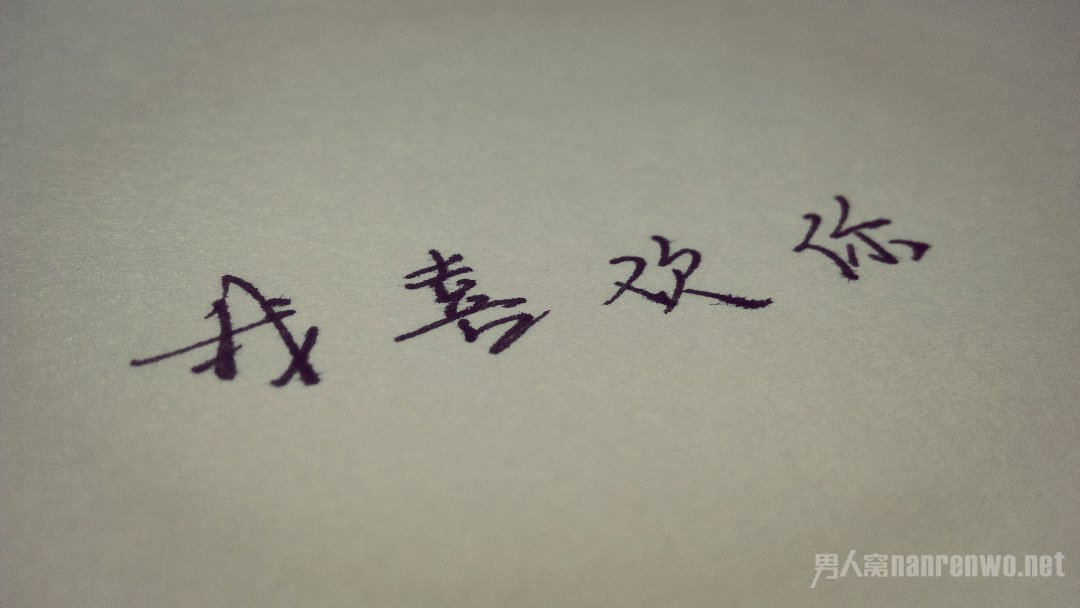 我喜欢你
男人窝nanrenwo.net